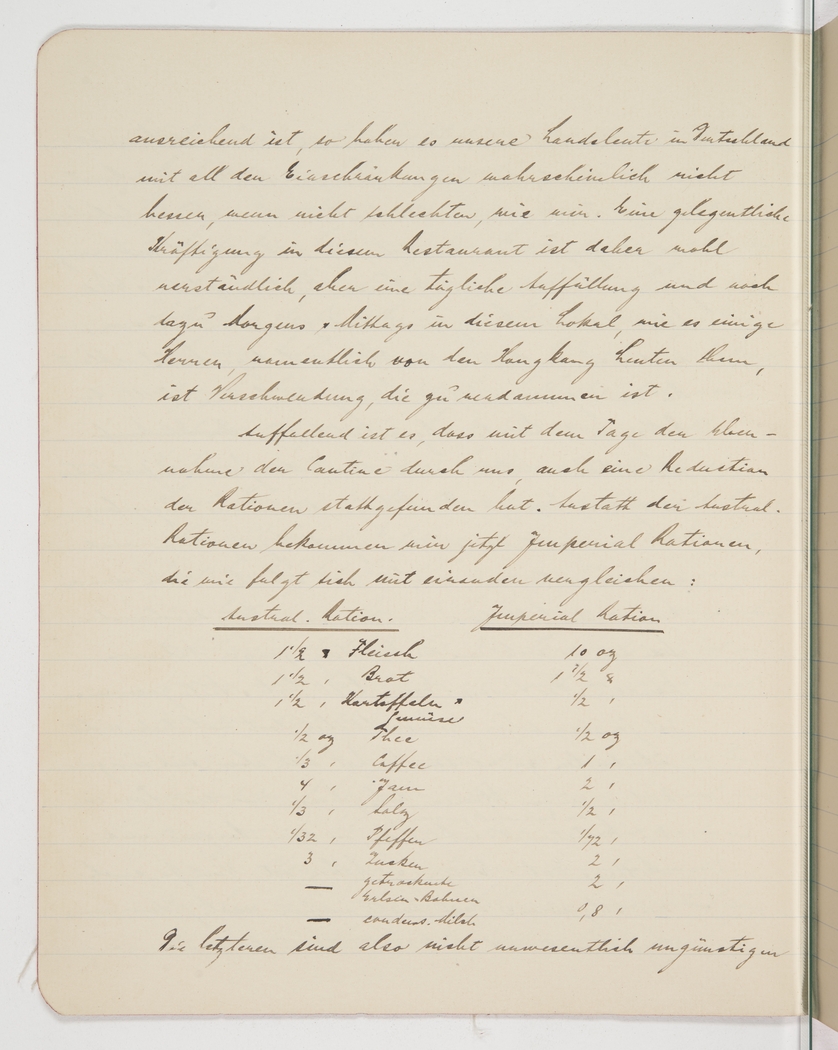 ausreichend ist, so haben es unsere Landsleute in Deutschland
mit all den Einschränkungen wahrscheinlich nicht
besser, wenn nicht schlechter, wie wir. Eine gelegentliche
Kräftigung in diesem Restaurant ist daher wohl
verständlich, aber eine tägliche Auffüllung und noch
dazu Morgens & Mittags in diesem Lokal, wie es einige
Herren, namentlich von den Hongkong Leuten thun,
ist Verschwendung, die zu verdammen ist.
Auffallend ist es, dass mit dem Tage der Über-
nahme der Cantine durch uns, auch eine Reduction
der Rationen stattgefunden hat. Anstatt der Austral.
Rationen bekommen wir jetzt Imperial Rationen,
die wie folgt sich mit einander vergleichen:
Austral. Ration. Imperial Ration
1 1/2 Fleisch 10 oz
1 1/2 " Brot 1 1/2
1 1/2 " Kartoffeln & 1/2 "
Gemüse
1/2 oz Thee 1/2 oz
1/3 " Caffee 1 "
4 " Jam 2 "
1/3 " Salz 1/2 "
1/32 " Pfeffer 1/72 "
3 " Zucker 2 "
— getrocknete 2 "
Erbsen-Bohnen
— condens. Milch 0,8 "
Die letzteren sind also nicht unwesentlich ungünstiger